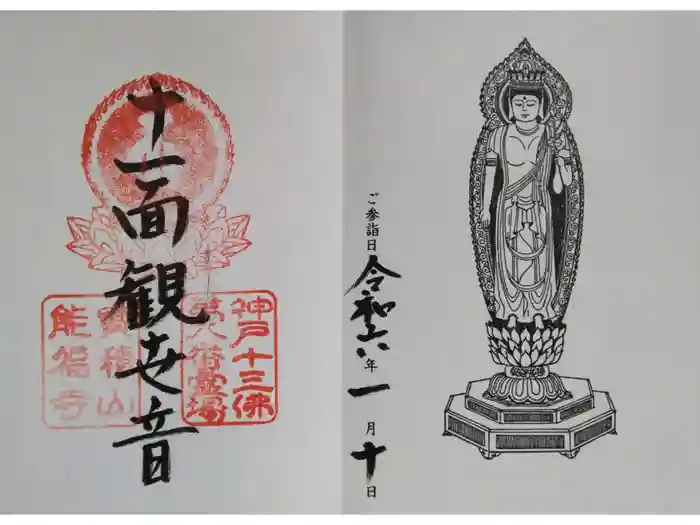 ご参詣日
令和六年
一月
十日
十一面観世音
神戸十三佛
第八番霊場
宝積山
能福寺